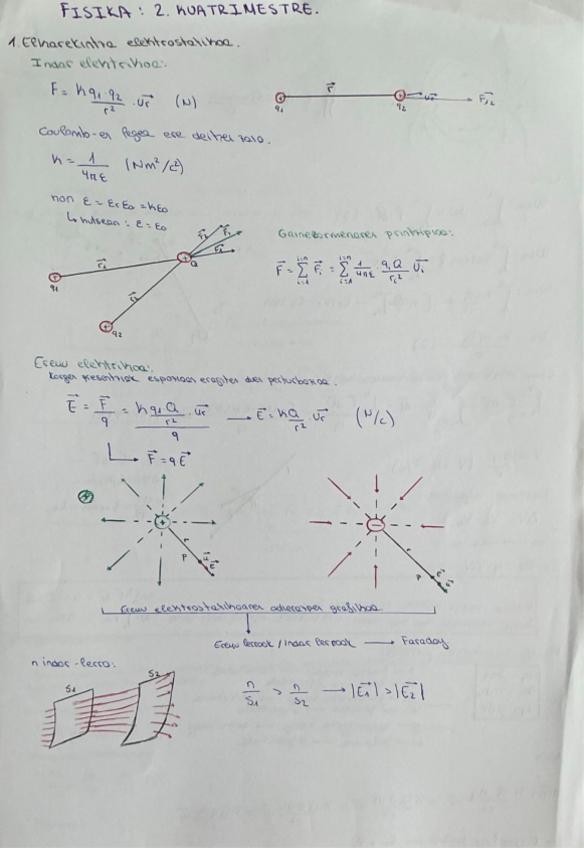 FISIKA: 2. KUATRIMESTRE.
1. Elkarekintza elektrostatikoa.
Indar elektrikoa:
F = k q1·q2 / r² · ur (N)
r ur F12
q1 q2
Coulomb-en legea ere deitzen zaio.
k = 1 / 4πε (Nm²/c²)
non ε = εr ε0 = kε0
↳ hutsean: ε = ε0
Gainezarmenaren printzipioa:
F = Σ Fi = Σ 1/4πε qi Q / ri² Ui
r1 Q
q1
r2
q2
Eremu elektrikoa:
kargen presentziak espazioan eragiten duen perturbazioa.
E = F/q = k q1 Q / r² · ur / q → E = kQ / r² · ur (N/c)
↳ F = qE
+ r P u E
− r P E u
Eremu elektrostatikoaren adierazpen grafikoa
Eremu lerroak / Indar lerroak → Faraday
n indar-lerro:
S1 S2
n/S1 > n/S2 → |E1| > |E2|